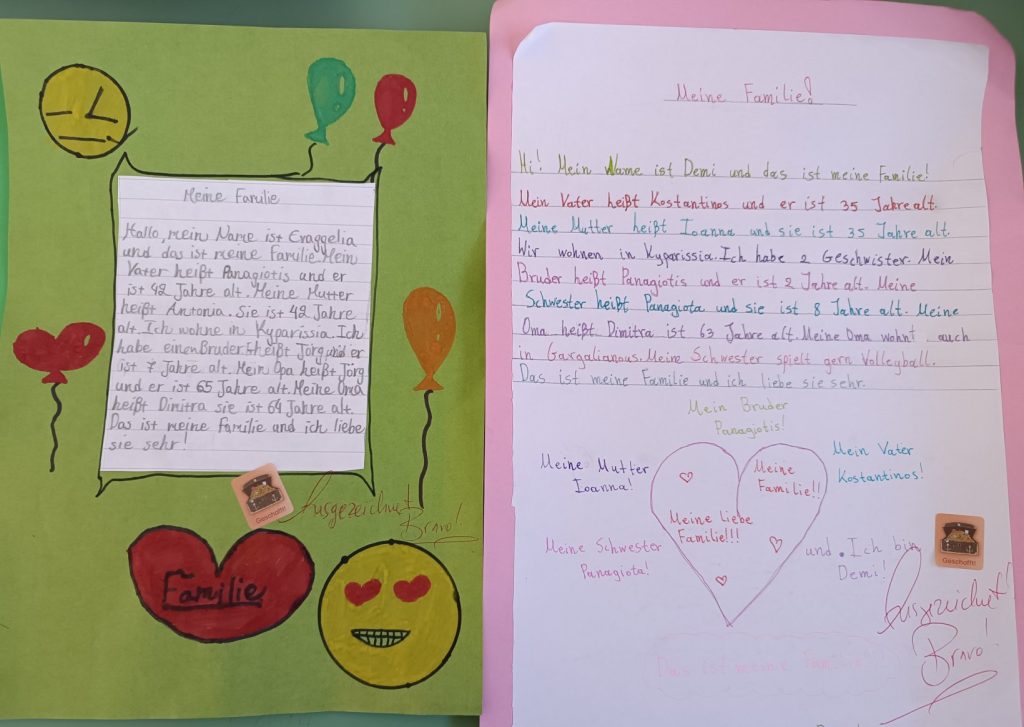 Meine Familie
Hallo, mein Name ist Evaggelia
und das ist meine Familie. Mein
Vater heißt Panagiotis und er
ist 42 Jahre alt. Meine Mutter
heißt Antonia. Sie ist 42 Jahre
alt. Ich wohne in Kyparissia. Ich
habe einen Bruder heißt Jörg und er
ist 7 Jahre alt. Mein Opa heißt Jörg
und er ist 65 Jahre alt. Meine Oma
heißt Dimitra sie ist 64 Jahre alt.
Das ist meine Familie und ich liebe
sie sehr!
Geschafft!
Ausgezeichnet
Bravo!
Familie
Meine Familie!
Hi! Mein Name ist Demi und das ist meine Familie!
Mein Vater heißt Kostantinos und er ist 35 Jahre alt.
Meine Mutter heißt Ioanna und sie ist 35 Jahre alt.
Wir wohnen in Kyparissia. Ich habe 2 Geschwister. Mein
Bruder heißt Panagiotis und er ist 2 Jahre alt. Meine
Schwester heißt Panagiota und sie ist 8 Jahre alt. Meine
Oma heißt Dimitra ist 63 Jahre alt. Meine Oma wohnt auch
in Gargalianous. Meine Schwester spielt gern Volleyball.
Das ist meine Familie und ich liebe sie sehr.
Mein Bruder
Panagiotis!
Meine Mutter
Ioanna!
Meine
Familie!!
Mein Vater
Kostantinos!
Meine liebe
Familie!!!
Meine Schwester
Panagiota!
und . Ich bin
Demi!
Geschafft!
Ausgezeichnet!
Bravo!
Das ist meine Familie